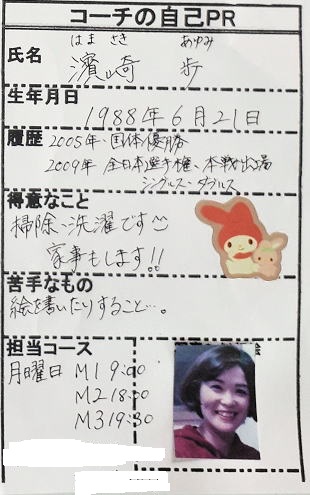 コーチの自己PR
氏名
はま さき あゆみ
濱崎 歩
生年月日
1988年6月21日
履歴
2005年、国体優勝
2009年 全日本選手権、本戦出場
シングルス・ダブルス
得意なこと
掃除、洗濯です
家事もします!!
苦手なもの
絵を書いたりすること…。
担当コース
月曜日 M1 9:00
M2 18:00
M3 19:30